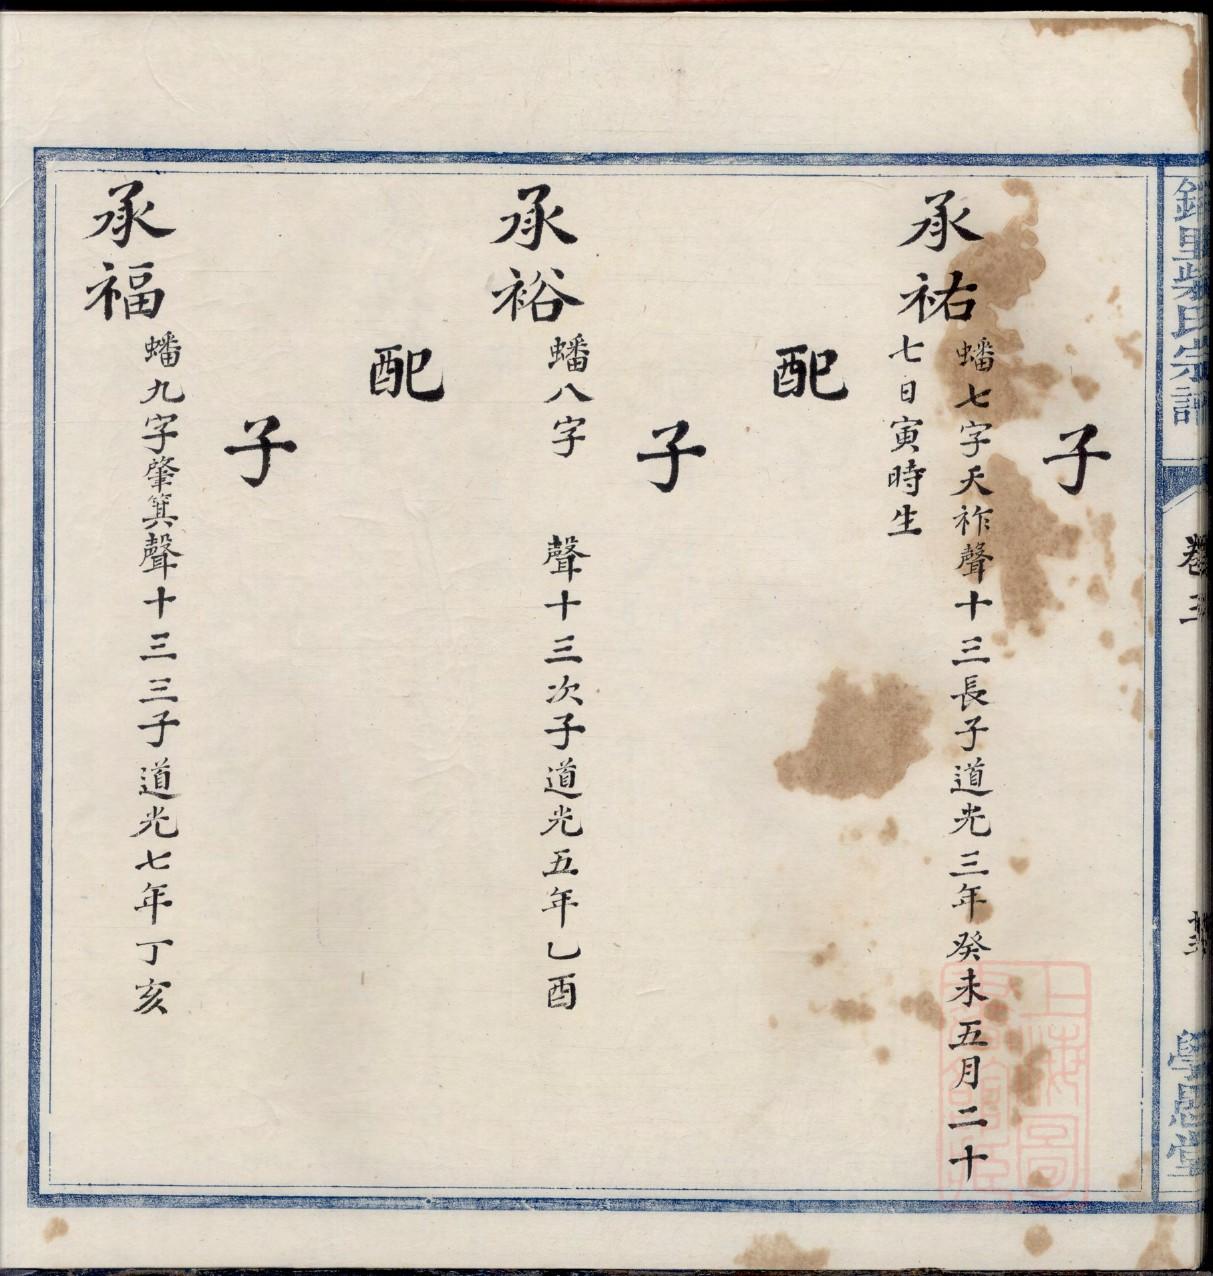 子
承祐
蟠七字天祚聲十三長子道光三年癸未五月二十
七日寅時生
配
子
承裕
蟠八字 聲十三次子道光五年乙酉
配
子
承福
蟠九字肇箕聲十三三子道光七年丁亥
里柴氏宗譜
卷三
學思堂
上海圖